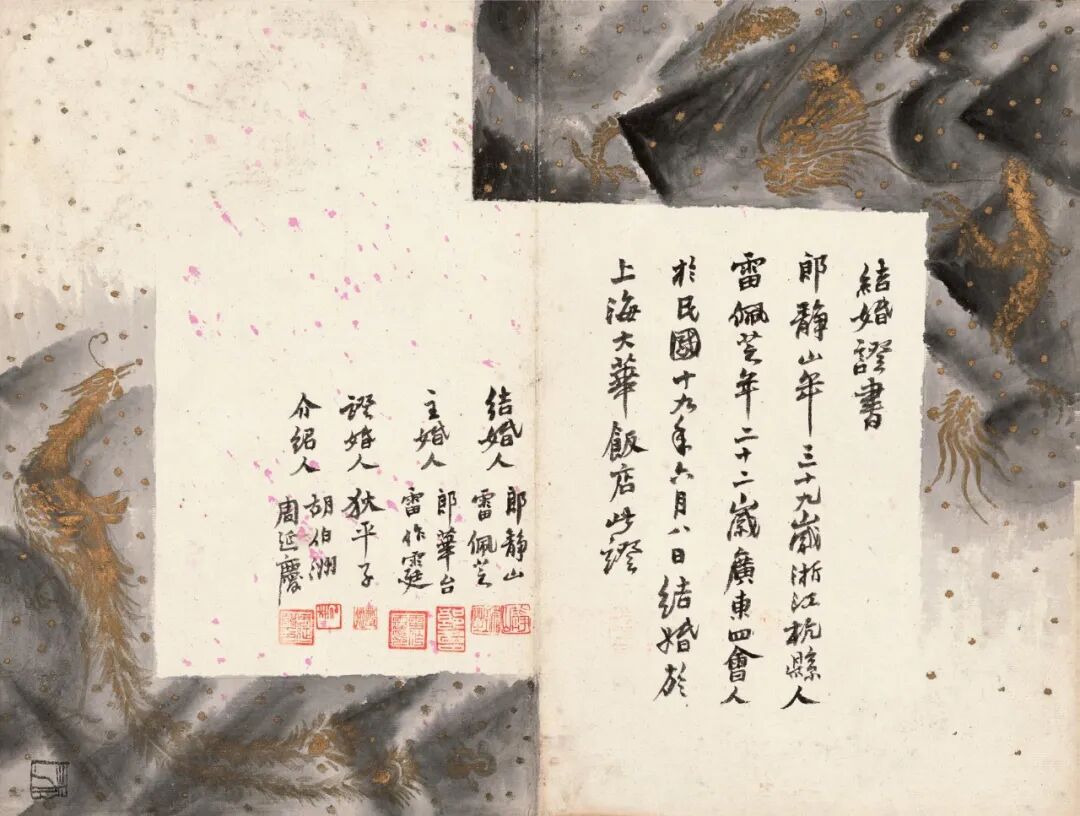 結婚證書
郎靜山年三十九歲浙江杭縣人
雷佩芝年二十二歲廣東四會人
於民國十九年六月八日結婚於
上海大華飯店此證
結婚人 郎靜山
雷佩芝
主婚人 郎華台
雷作霆
證婚人 狄平子
介紹人 胡伯洲
周延慶